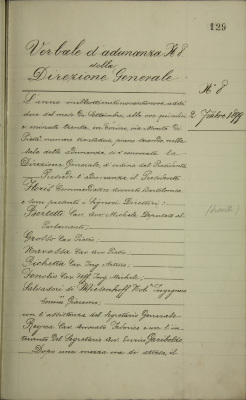 129
Verbale d'adunanza N. 8
della
Direzione Generale
N. 8
L'anno milleottocentonovantanove, addì
due del mese di Settembre, alle ore quindici
2 7bre 1899
e minuti trenta, in Torino, via Monte di
Pietà numero
sala delle adunanze, si è radunata la
Direzione Generale, d'ordine del Presidente
Presiede l'adunanza il Presidente
Floris Commendatore Avvocato
e sono presenti i Signori Direttori:
Bertetti Cav. Avv. Michele Deputato al
Parlamento;
Grosso Cav. Pietro;
Cav. Avv. Pietro;
Richetta Cav. Ing.
Fenolio Cav. Uff. Ing. Michele;
Salvadori di Wiesenhoff Nob. Ingegnere
Comm. Giacomo;
con l'assistenza del Segretario Generale
Regna Cav. Avvocato Federico e con l'in-
tervento del Segretario Avv. Enrico Garibaldi.
Dopo una mezza ora di attesa, il